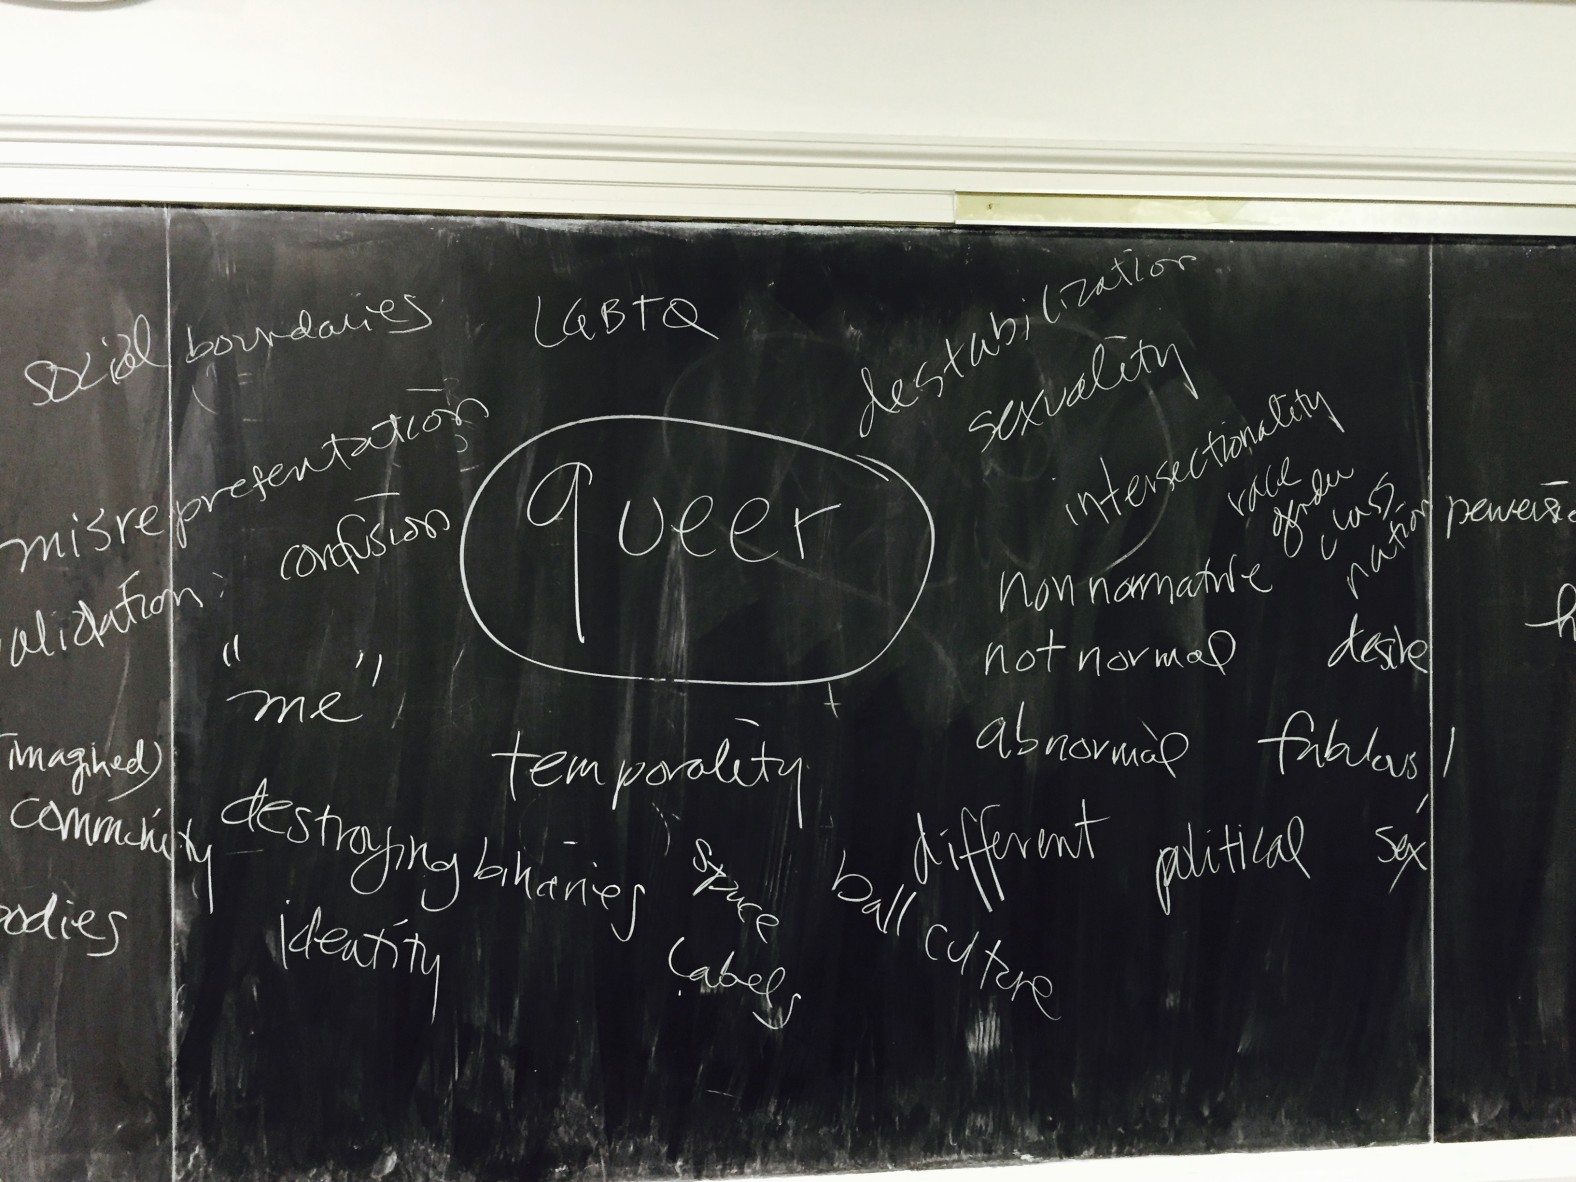 social boundaries
LGBTQ
destabilization
sexuality
misrepresentation
confusion
queer
intersectionality
race
gender
class
nation
non normative
not normal
desire
"me"
temporality
abnormal
fabulous!
(imagined)
community
destroying binaries
space
ball culture
different
political
sex
identity
labels